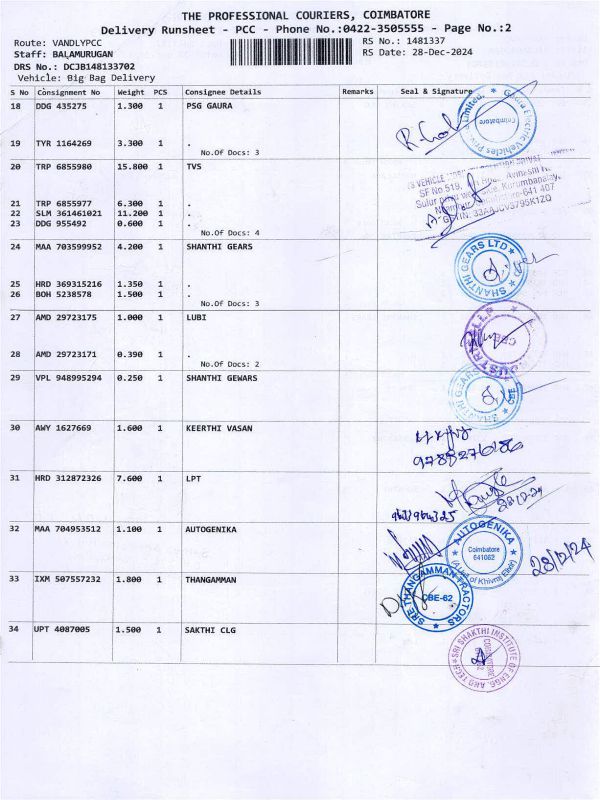 THE PROFESSIONAL COURIERS, COIMBATORE
Delivery Runsheet - PCC - Phone No.:0422-3505555 - Page No.:2
Route: VANDLYPCC
RS No.: 1481337
Staff: BALAMURUGAN
RS Date: 28-Dec-2024
DRS No.: DCJB148133702
Vehicle: Big Bag Delivery
S No Consignment No Weight PCS Consignee Details Remarks Seal & Signature
18 DDG 435275 1.300 1 PSG GAURA
Gaura Electric Vehicles Limited.
Coimbatore
19 TYR 1164269 3.300 1 .
No.Of Docs: 3
20 TRP 6855980 15.800 1 TVS
SF No 519,
641 407
21 TRP 6855977 6.300 1 .
22 SLM 361461021 11.200 1 .
23 DDG 955492 0.600 1 .
No.Of Docs: 4
24 MAA 703599952 4.200 1 SHANTHI GEARS
SHANTHI GEARS LTD
25 HRD 369315216 1.350 1 .
26 BOH 5238578 1.500 1 .
No.Of Docs: 3
27 AMD 29723175 1.000 1 LUBI
28 AMD 29723171 0.390 1 .
No.Of Docs: 2
29 VPL 948995294 0.250 1 SHANTHI GEWARS
SHANTHI GEARS
CBE
30 AWY 1627669 1.600 1 KEERTHI VASAN
31 HRD 312872326 7.600 1 LPT
28-12-24
32 MAA 704953512 1.100 1 AUTOGENIKA
AUTOGENIKA
Coimbatore
641062
(A Unit of Khivraj Elixir)
28/12/24
33 IXM 507557232 1.800 1 THANGAMMAN
SRE THANGAMMAN TRACTORS
CBE-62
34 UPT 4087005 1.500 1 SAKTHI CLG
SRI SHAKTHI INSTITUTE OF ENGG. AND TECH